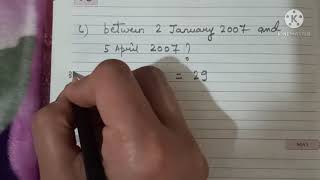 c) between 2 January 2007 and
5 April 2007 ?
= 29